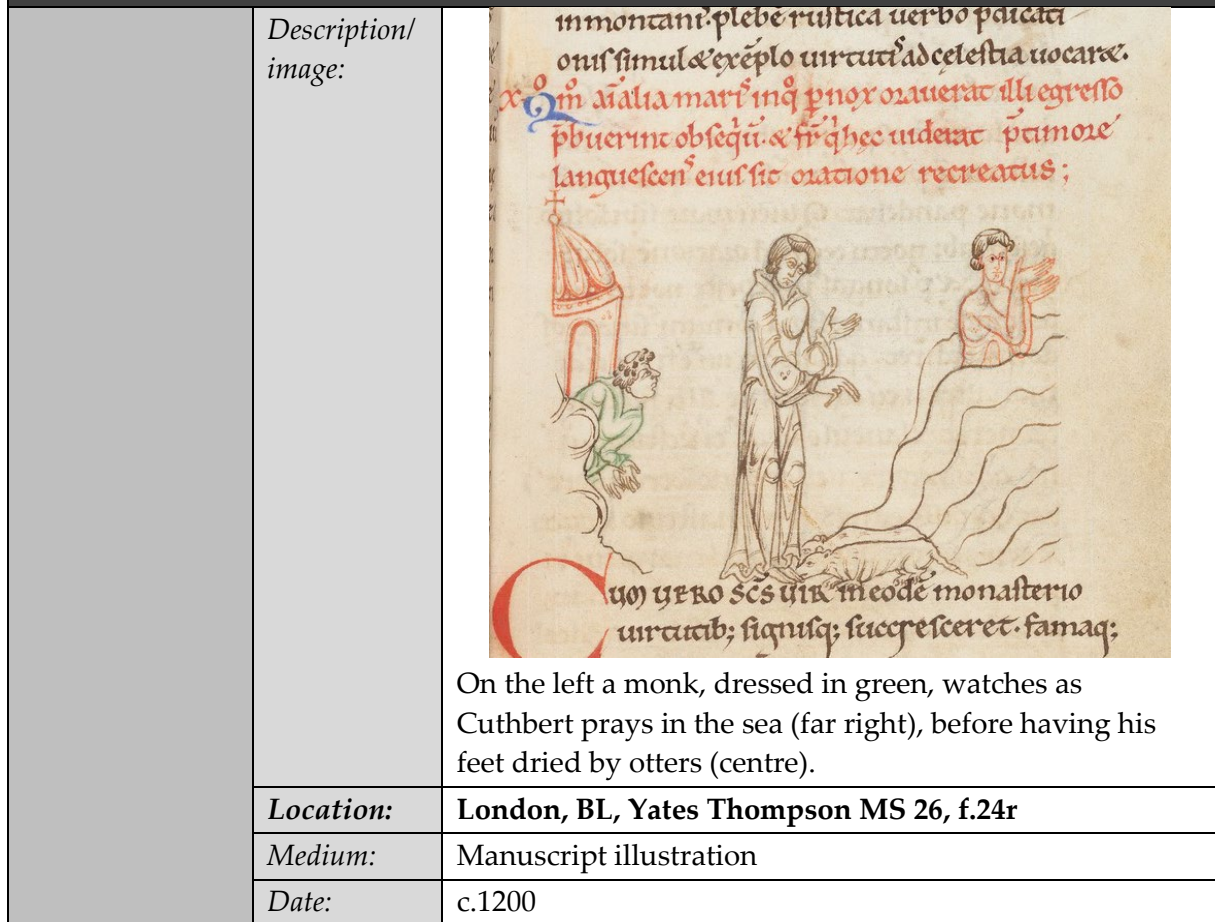 Description/
image:
inmontaniˢ plebē rusticā uerbo p̄dicati
onis simul & exēplo uirtutiˢ ad celestia uocare.
x. Qm̄ aīalia mariˢ inq̊ p̄nox orauerat illi egresso
p̄buerint obseq̇ū. & fr̄ q̇ hec uiderat p̄ timore
languescenˢ eiuˢ sit oratione recreatus;
CUM UERO SC̄S UIR in eodē monasterio
uirtutib; signisq; succresceret. famaq;
On the left a monk, dressed in green, watches as
Cuthbert prays in the sea (far right), before having his
feet dried by otters (centre).
Location: London, BL, Yates Thompson MS 26, f.24r
Medium: Manuscript illustration
Date: c.1200